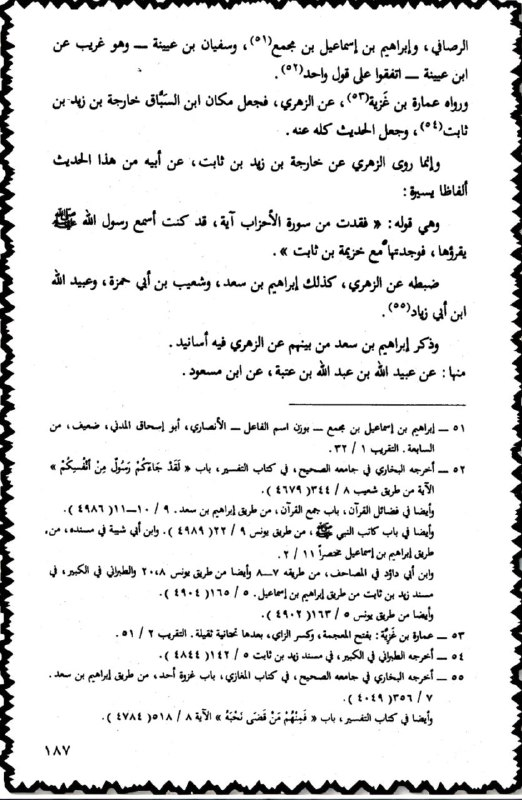 الرصافي، وإبراهيم بن إسماعيل بن مجمع(٥١)، وسفيان بن عيينة ــ وهو غريب عن
ابن عيينة ــ اتفقوا على قول واحد(٥٢).
ورواه عمارة بن غَزية(٥٣)، عن الزهري، فجعل مكان ابن السبَّاق خارجة بن زيد بن
ثابت(٥٤)، وجعل الحديث كله عنه.
وإنما روى الزهري عن خارجة بن زيد بن ثابت، عن أبيه من هذا الحديث
ألفاظا يسيرة:
وهي قوله: « فقدت من سورة الأحزاب آية، قد كنت أسمع رسول الله ﷺ
يقرؤها، فوجدتها مع خزيمة بن ثابت ».
ضبطه عن الزهري، كذلك إبراهيم بن سعد، وشعيب بن أبي حمزة، وعبيد الله
ابن أبي زياد(٥٥).
وذكر إبراهيم بن سعد من بينهم عن الزهري فيه أسانيد.
منها: عن عبيد الله بن عبد الله بن عتبة، عن ابن مسعود.
٥١ ــ إبراهيم بن إسماعيل بن مجمع ــ بوزن اسم الفاعل ــ الأنصاري، أبو إسحاق المدني، ضعيف، من
السابعة. التقريب ١ / ٣٢.
٥٢ ــ أخرجه البخاري في جامعه الصحيح، في كتاب التفسير، باب « لَقَدْ جَاءَكُمْ رَسُولٌ مِنْ أَنْفُسِكُمْ »
الآية من طريق شعيب ٨ / ٣٤٤ ( ٤٦٧٩ ).
وأيضا في فضائل القرآن، باب جمع القرآن، من طريق إبراهيم بن سعد. ٩ / ١٠ــ١١ ( ٤٩٨٦ ).
وأيضا في باب كاتب النبي ﷺ، من طريق يونس ٩ / ٢٢ ( ٤٩٨٩ ). وابن أبي شيبة في مسنده، من
طريق إبراهيم بن إسماعيل مختصراً ١١ / ٢.
وابن أبي داؤد في المصاحف، من طريقه ٧ــ٨ وأيضا من طريق يونس ٢٠،٨ والطبراني في الكبير، في
مسند زيد بن ثابت من طريق إبراهيم بن إسماعيل. ٥ / ١٦٥ ( ٤٩٠٤ ).
وأيضا من طريق يونس ٥ / ١٦٣ ( ٤٩٠٢ ).
٥٣ ــ عمارة بن غَزِيَّة: بفتح المعجمة، وكسر الزاي، بعدها تحتانية ثقيلة. التقريب ٢ / ٥١.
٥٤ ــ أخرجه الطبراني في الكبير، في مسند زيد بن ثابت ٥ / ١٤٢ ( ٤٨٤٤ ).
٥٥ ــ أخرجه البخاري في جامعه الصحيح، في كتاب المغازي، باب غزوة أحد، من طريق إبراهيم بن سعد.
٧ / ٣٥٦ ( ٤٠٤٩ ).
وأيضا في كتاب التفسير، باب « فَمِنْهُمْ مَنْ قَضَى نَحْبَهُ » الآية ٨ / ٥١٨ ( ٤٧٨٤ ).
١٨٧